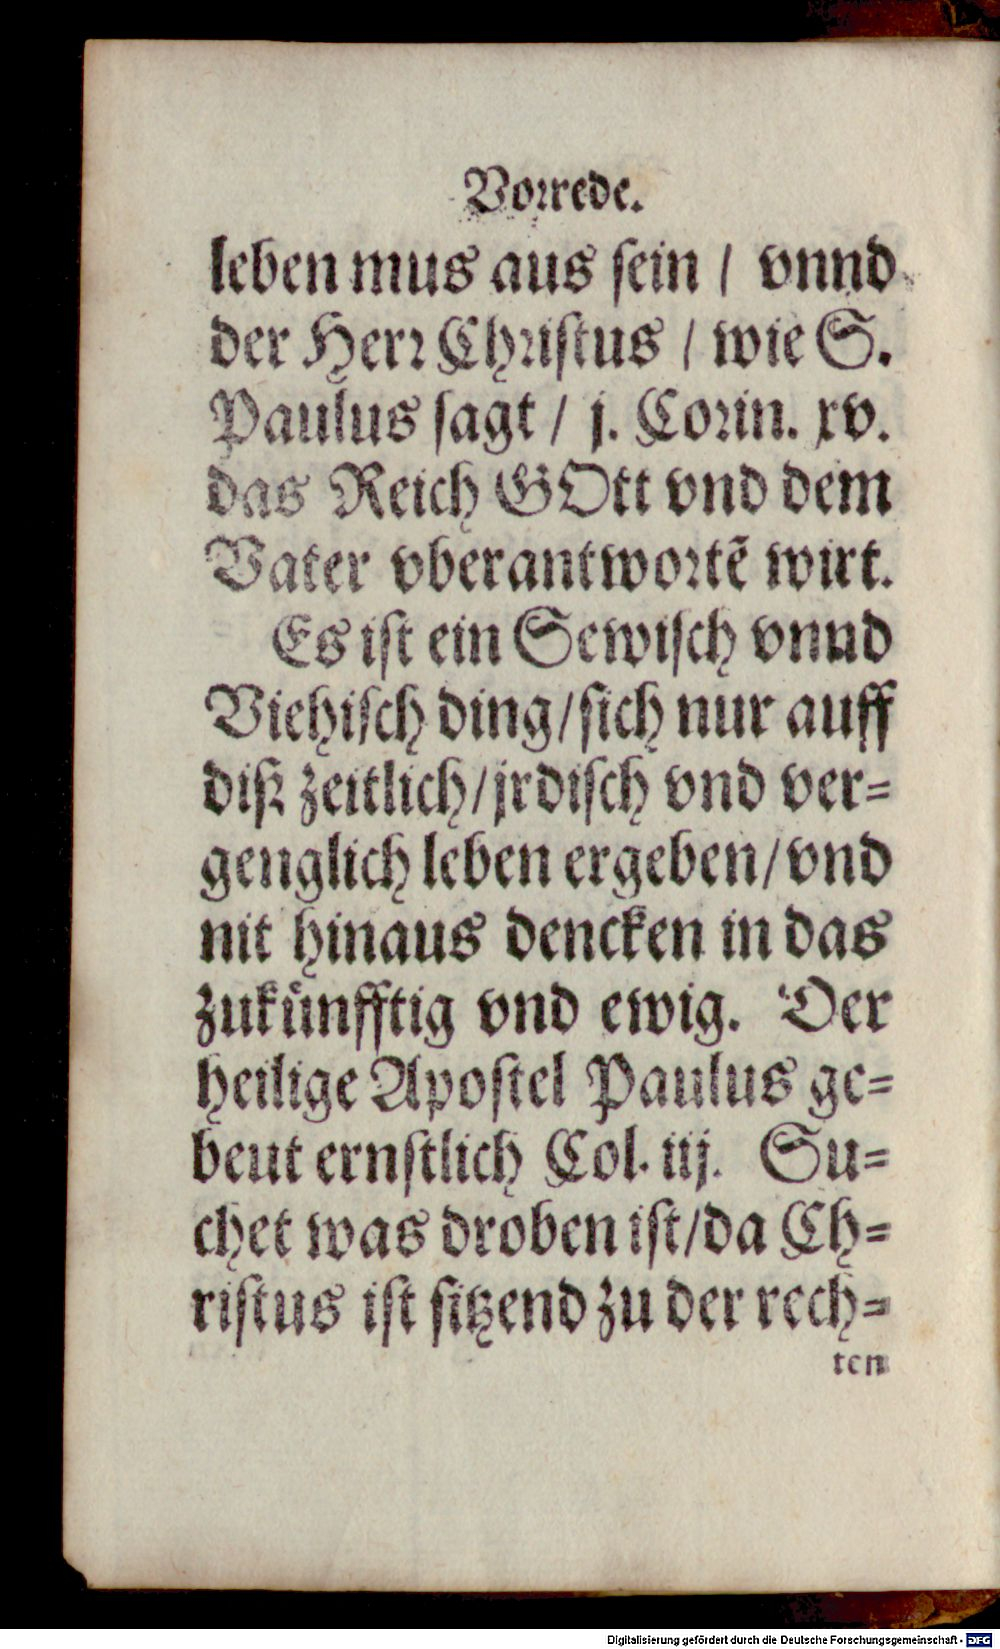 Vorrede.
leben mus aus sein / vnnd
der Herr Christus / wie S.
Paulus sagt / j. Corin. xv.
das Reich GOtt vnd dem
Vater vberantwortē wirt.
Es ist ein Sewisch vnnd
Viehisch ding/sich nur auff
diß zeitlich/jrdisch vnd ver=
genglich leben ergeben/vnd
nit hinaus dencken in das
zukünfftig vnd ewig. Der
heilige Apostel Paulus ge=
beut ernstlich Col. iij. Su=
chet was droben ist/da Ch=
ristus ist sitzend zu der rech=
ten
Digitalisierung gefördert durch die Deutsche Forschungsgemeinschaft - DFG